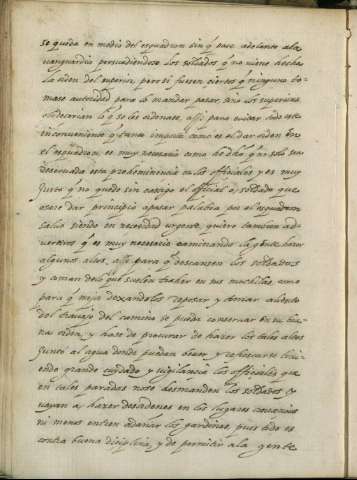 se queda en medio del esquadron sin q̃ pase adelante a la
vanguardia persuadiendose los soldados q̃ no viene hecha
la orden del superior, pero si fuesen ciertos q̃ ninguno to-
mase autoridad para lo mandar pasar, sino los superiores
obedecerian lo q̃ se les ordenase, assi para evitar todo este
inconveniente q̃ tanto importa como es el dar orden en
el esquadron, es muy necesario como he dho q̃ no solo sea
reservada esta preheminencia en los officiales y es muy
justo q̃ no quede sin castigo el official o soldado que
osare dar principio a pasar palabra por el esquadron
salvo siendo en necesidad urgente, quiero tambien ad-
vertiros q̃ es muy necesario caminando la gente hazer
algunos altos, assi para q̃ descansen los soldados
y coman de lo que suelen traher en sus mochilas, como
para q̃ mejor dexandolos reposar y tomar aliento
del trabajo del camino se pueda conservar en su bue-
na orden, y hase de procurar de hazer los tales altos
junto al agua donde puedan bever y refrescarse teni-
endo grande cuydado y vigilancia los officiales que
en tales paradas no se desmanden los soldados y
vayan a hazer desordenes en los lugares comarcanos
ni menos entren a dañar los jardines, pues todo es
contra buena disciplina, y de permitir a la gente